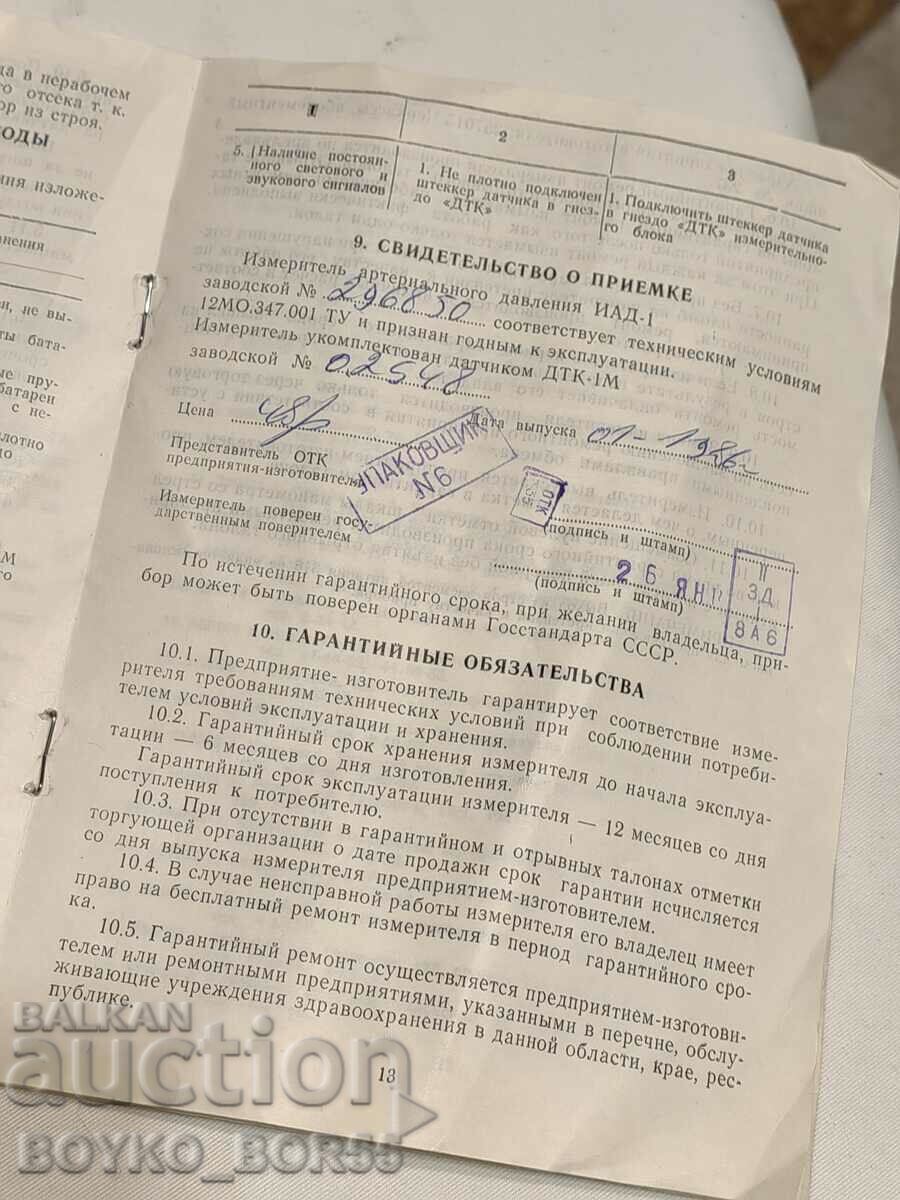 да в нерабочем
го отсека т. к.
ор из строя.
ОДЫ
ния изложе-
нения
и, не вы-
ты бата-
ые пру-
батареи
с не-
лотно
до
М
ого
1
2
3
5. Наличие постоян-
ного светового и
звукового сигналов
1. Не плотно подключен
штеккер датчика в гнез-
до «ДТК»
1. Подключить штеккер датчика
в гнездо «ДТК» измерительно-
го блока
9. СВИДЕТЕЛЬСТВО О ПРИЕМКЕ
Измеритель артериального давления ИАД-1
заводской № 296850 соответствует техническим условиям
12МО.347.001 ТУ и признан годным к эксплуатации.
Измеритель укомплектован датчиком ДТК-1М
заводской № 02548
Цена 48р Дата выпуска 01-1986
Представитель ОТК
предприятия-изготовителя
УПАКОВЩИК
№6
ОТК
(подпись и штамп)
Измеритель поверен госу-
дарственным поверителем
(подпись и штамп)
26 ЯН
П
ЗД
8А6
По истечении гарантийного срока, при желании владельца, при-
бор может быть поверен органами Госстандарта СССР.
10. ГАРАНТИЙНЫЕ ОБЯЗАТЕЛЬСТВА
10.1. Предприятие- изготовитель гарантирует соответствие изме-
рителя требованиям технических условий при соблюдении потреби-
телем условий эксплуатации и хранения.
10.2. Гарантийный срок хранения измерителя до начала эксплуа-
тации — 6 месяцев со дня изготовления.
Гарантийный срок эксплуатации измерителя — 12 месяцев со дня
поступления к потребителю.
10.3. При отсутствии в гарантийном и отрывных талонах отметки
торгующей организации о дате продажи срок гарантии исчисляется
со дня выпуска измерителя предприятием-изготовителем.
10.4. В случае неисправной работы измерителя его владелец имеет
право на бесплатный ремонт измерителя в период гарантийного сро-
ка.
10.5. Гарантийный ремонт осуществляется предприятием-изготови-
телем или ремонтными предприятиями, указанными в перечне, обслу-
живающие учреждения здравоохранения в данной области, крае, рес-
публике.
13
BALKAN
auction
BOYKO_BOR55